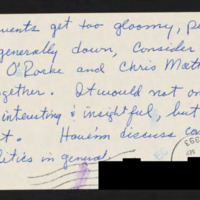 ments get too gloomy, p
generally down, consider
O'Rorke and Chris Matt
together. It would not on
interesting & insightful, but
t. Have 'em discuss ca
litics in general.
1993